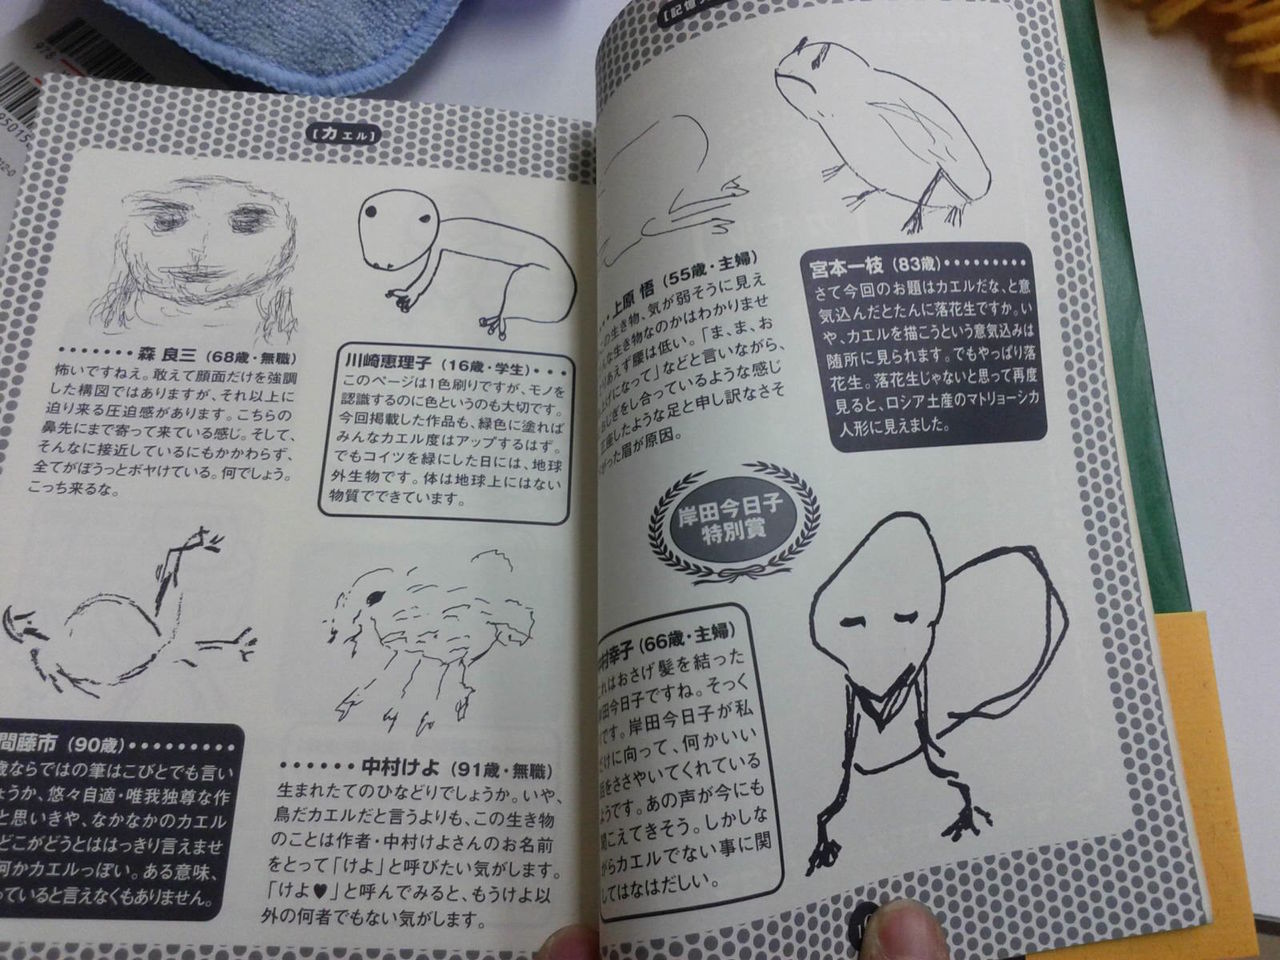 [カエル]
森 良三（68歳・無職）
怖いですねえ。敢えて顔面だけを強調
した構図ではありますが、それ以上に
迫り来る圧迫感があります。こちらの
鼻先にまで寄って来ている感じ。そして、
そんなに接近しているにもかかわらず、
全てがぼうっとボヤけている。何でしょう。
こっち来るな。
川崎恵理子（16歳・学生）
このページは1色刷りですが、モノを
認識するのに色というのも大切です。
今回掲載した作品も、緑色に塗れば
みんなカエル度はアップするはず。
でもコイツを緑にした日には、地球
外生物です。体は地球上にはない
物質でできています。
間藤市（90歳）
歳ならではの筆はこびとでも言い
ょうか、悠々自適・唯我独尊な作
と思いきや、なかなかのカエル
どこがどうとははっきり言えませ
何かカエルっぽい。ある意味、
っていると言えなくもありません。
中村けよ（91歳・無職）
生まれたてのひなどりでしょうか。いや、
鳥だカエルだと言うよりも、この生き物
のことは作者・中村けよさんのお名前
をとって「けよ」と呼びたい気がします。
「けよ♥」と呼んでみると、もうけよ以
外の何者でもない気がします。
[記憶
上原 悟（55歳・主婦）
の生き物、気が弱そうに見え
な生き物なのかはわかりませ
りあえず腰は低い。「ま、ま、お
げになって」などと言いながら、
じぎをし合っているような感じ
したような足と申し訳なさそ
がった眉が原因。
宮本一枝（83歳）
さて今回のお題はカエルだな、と意
気込んだとたんに落花生ですか。い
や、カエルを描こうという意気込みは
随所に見られます。でもやっぱり落
花生。落花生じゃないと思って再度
見ると、ロシア土産のマトリョーシカ
人形に見えました。
岸田今日子
特別賞
村幸子（66歳・主婦）
れはおさげ髪を結った
田今日子ですね。そっく
です。岸田今日子が私
だけに向って、何かいい
話をささやいてくれている
ようです。あの声が今にも
聞こえてきそう。しかしな
がらカエルでない事に関
してはなはだしい。